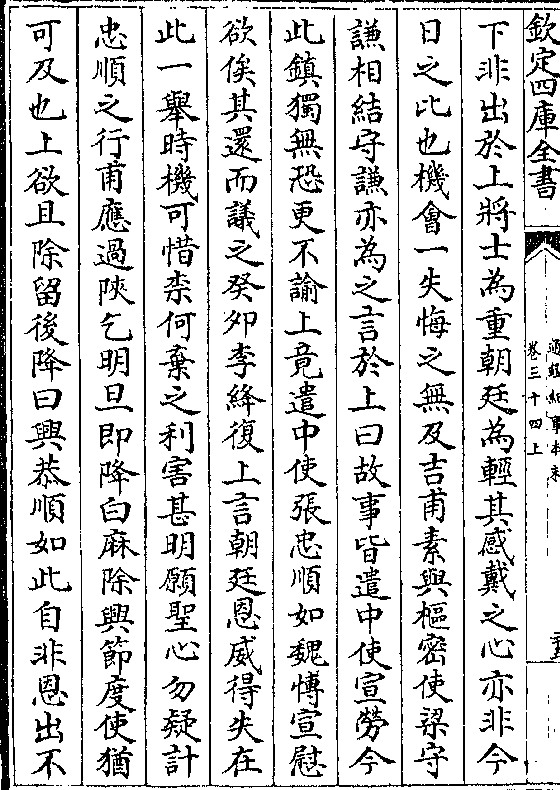 欽定四庫全書
通鑑紀事本末
卷三十四上
下非出於上將士為重朝廷為輕其感戴之心亦非今
日之比也機會一失悔之無及吉甫素與樞密使梁守
謙相結守謙亦為之言於上曰故事皆遣中使宣勞今
此鎮獨無恐更不諭上竟遣中使張忠順如魏愽宣慰
欲俟其還而議之癸卯李絳復上言朝廷恩威得失在
此一舉時機可惜柰何棄之利害甚明願聖心勿疑計
忠順之行甫應過陜乞明旦即降白麻除興節度使猶
可及也上欲且除留後降曰興恭順如此自非恩出不